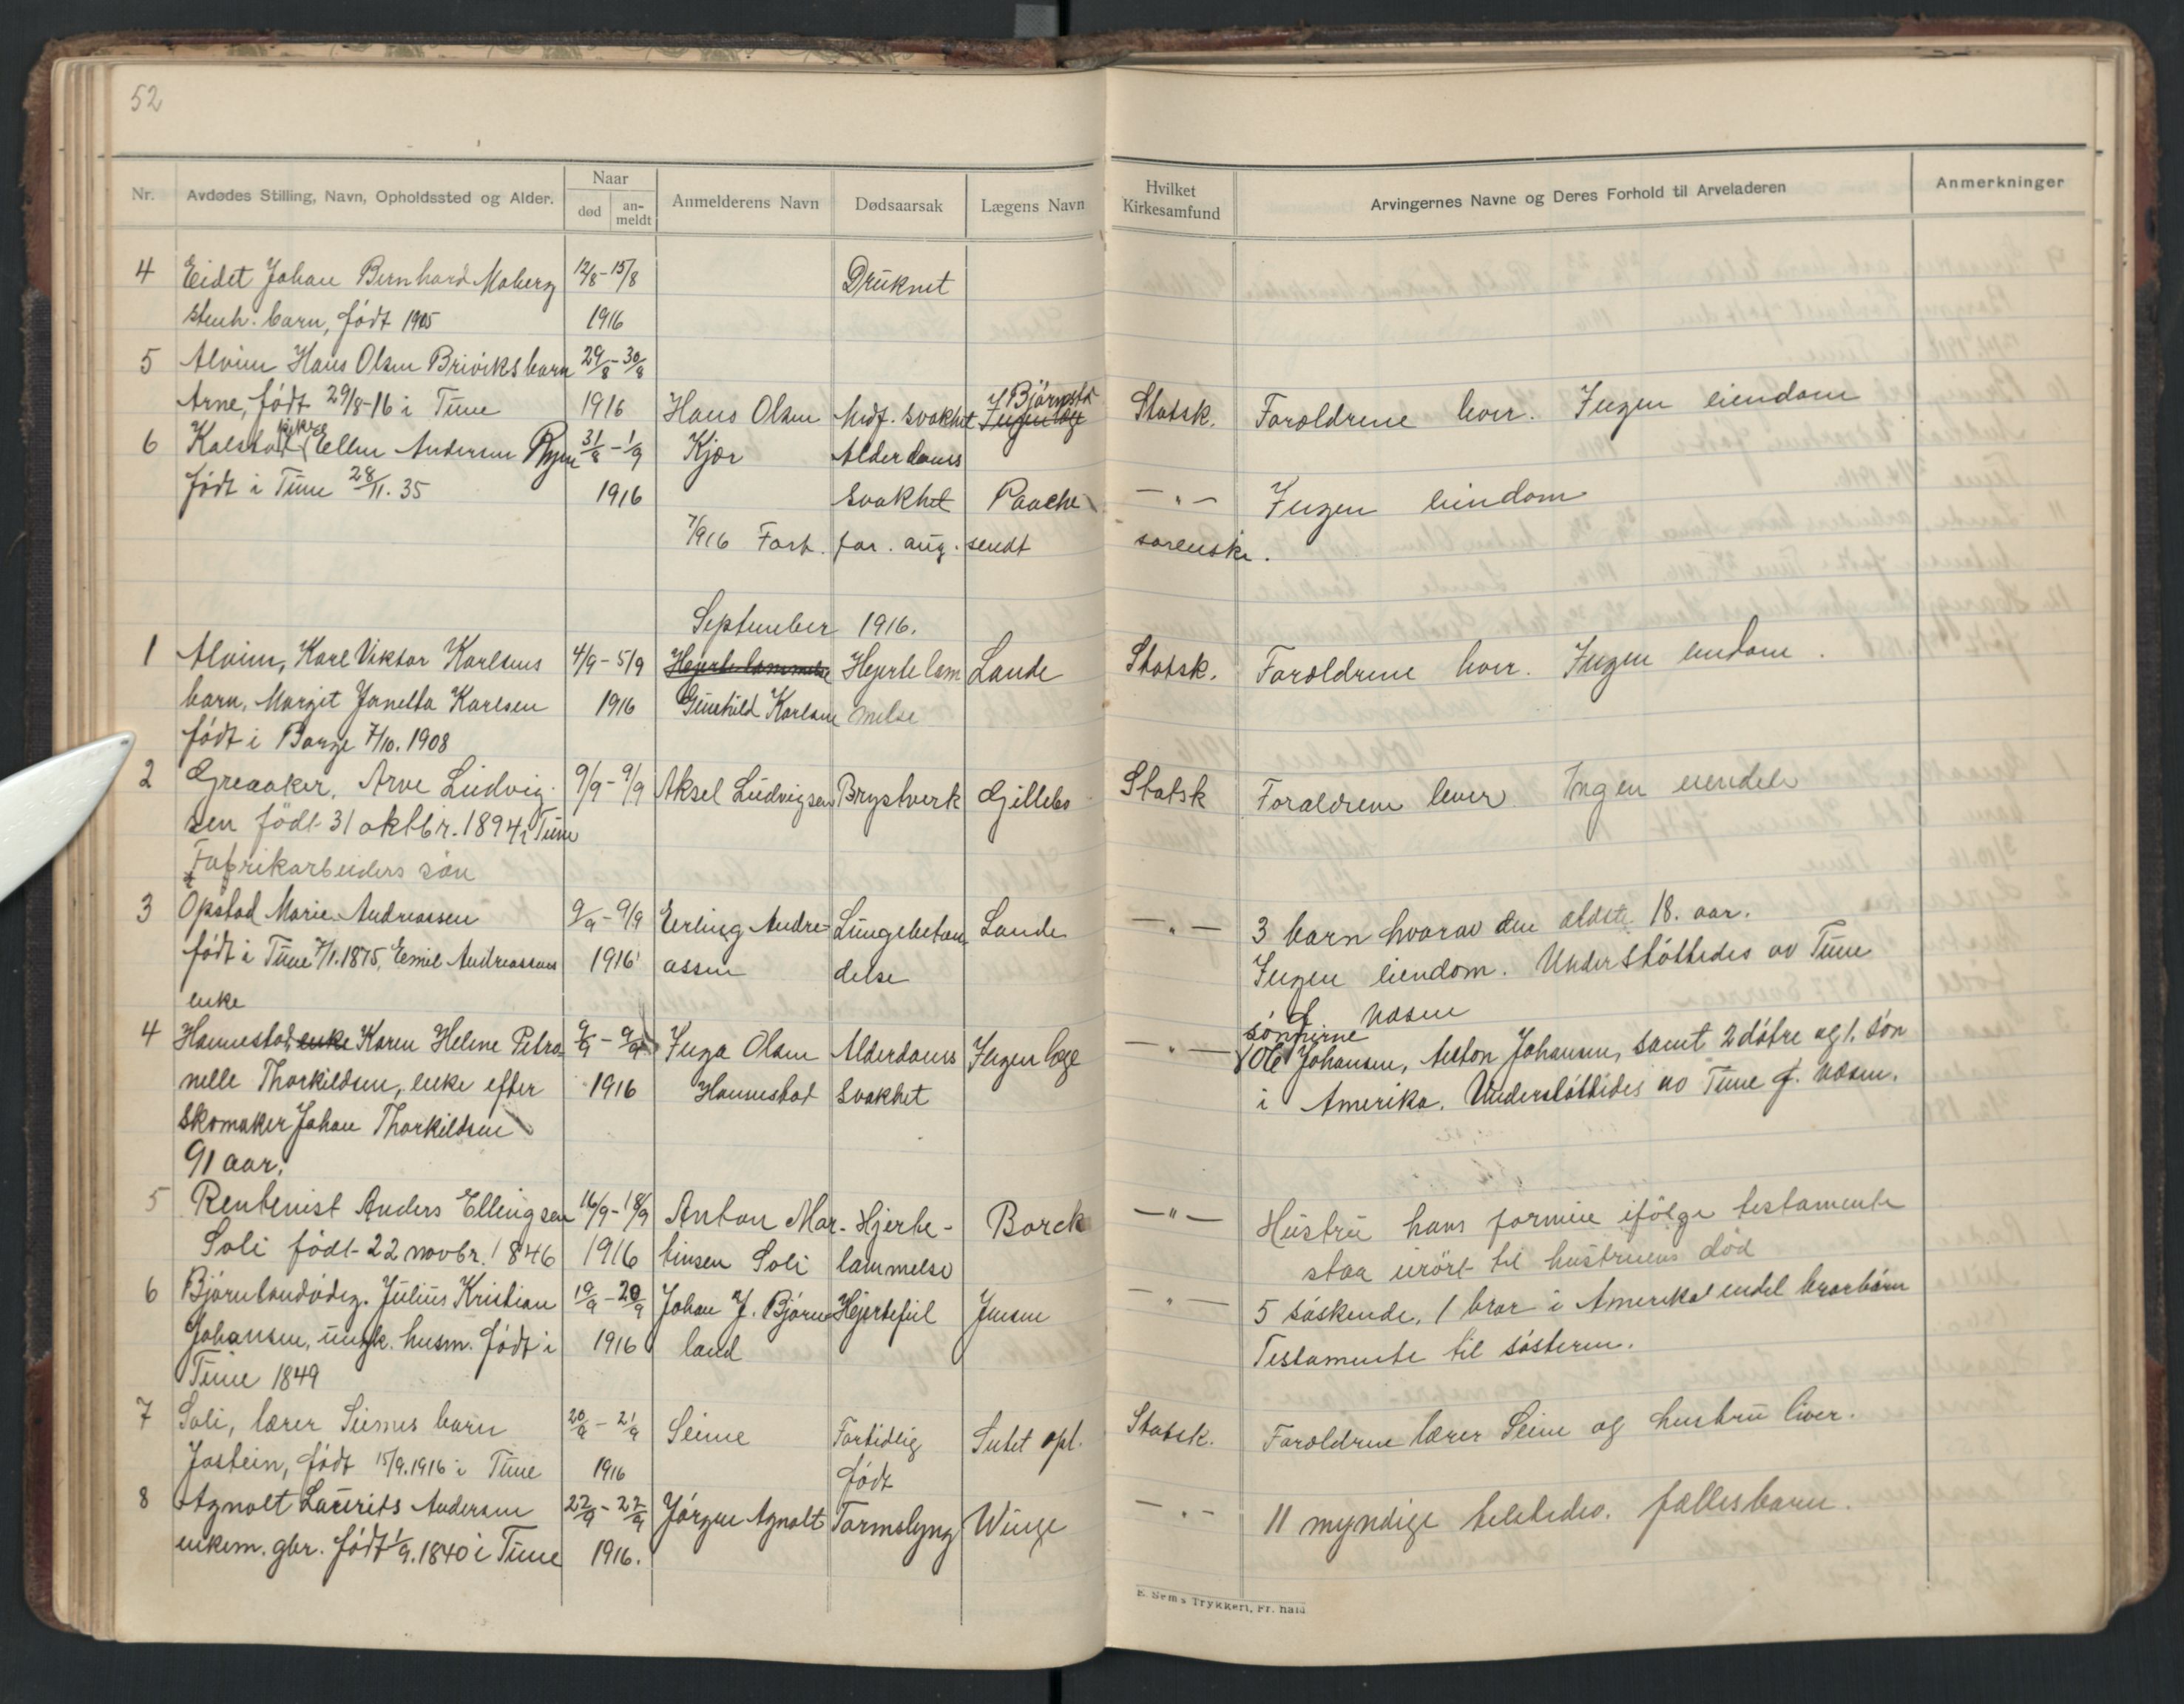 52
Nr.
Avdødes Stilling, Navn, Opholdssted og Alder.
Naar
død
an-
meldt
Anmelderens Navn
Dødsaarsak
Lægens Navn
Hvilket
Kirkesamfund
Arvingernes Navne og Deres Forhold til Arveladeren
Anmerkninger
4 Eidet Johan Bernhard Moberg 12/8-15/8 Druknet
stenh. barn, født 1905 1916
5 Alvim Hans Olsen Briviks barn 29/8-30/8
Arne, født 29/8-16 i Tune 1916 Hans Olsen Medf. svakhet Bjørnstad Statsk. Forældrene lever. Ingen eiendom
6 Kalstad Ellen Andersen 31/8-1/9 Kjær Alderdoms
født i Tune 28/11.35 1916 svakhet Paache -"- Ingen eiendom
7/9 16 Fort. for. aug. sendt sorenskr.
September 1916.
1 Alvim, Karl Viktor Karlsens 4/9-5/9 Hjertelammelse Hjertelam Lande Statsk. Forældrene lever. Ingen eiendom.
barn, Margit Janetta Karlsen 1916 Gunhild Karlsen melse
født i Borge 7/10.1908
2 Greaaker, Arve Ludvig- 9/9-9/9 Aksel Ludvigsen Brystverk Gillebo Statsk Foraldrene lever. Ingen eiendele
sen født 31 oktbr. 1894 i Tune
Fabrikarbeiders søn
3 Opstad Marie Andreassen 9/9-9/9 Erling Andre- Lungebetæn Lande -"- 3 barn hvorav den ældste 18. aar.
født i Tune 7/1.1875, Emil Andreassens 1916 assen delse Ingen eiendom. Understøttedes av Tune
enke f. væsen
4 Hannestad enke Karen Helene Petro- 9/9-9/9 Inga Olsen Alderdoms Ingen læge -"- sønnerne Ole Johansen, Anton Johansen, samt 2 døtre og 1. søn
nelle Thorkildsen, enke efter 1916 Hannestad svakhet i Amerika. Understøttedes av Tune f. væsen.
skomaker Johan Thorkildsen
91 aar.
5 Rentenist Anders Ellingsen 16/9-18/9 Anton Mar- Hjerte- Borck -"- Hustru hans formue ifølge testamente
Soli født 22 novbr. 1846 1916 tinsen Soli lammelse staa urørt til hustruens død
6 Bjørnland ødeg. Julius Kristian 19/9-20/9 Johan J. Bjørn Hjertefeil Jensen -"- 5 søskende, 1 bror i Amerika endel brorbarn
Johansen, ungk. husm. født i 1916 land Testamente til søsteren.
Tune 1849
7 Soli, lærer Siemes barn 20/9-21/9 Seime Fortidlig Intet opl. Statsk. Forældrene lærer Seime og hustru liver.
Jostein, født 15/9.1916 i Tune 1916 født
8 Agnalt Laurits Andersen 22/9-22/9 Jørgen Agnalt Tarmslyng Winge -"- 11 myndige fællesbarn.
enkem. gbr. født 1/9.1840 i Tune 1916.
E. Sem's Trykkeri, Fr. hald